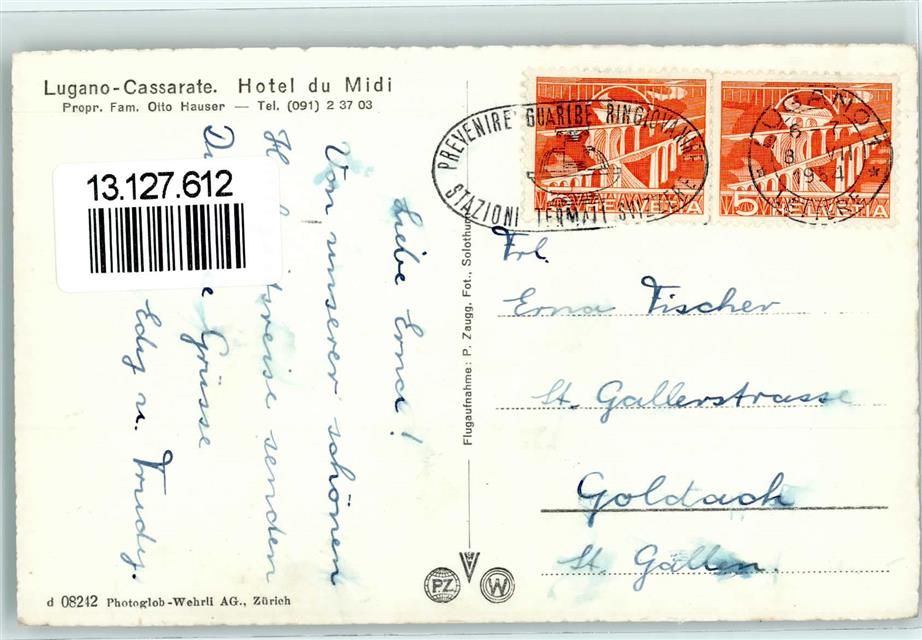 Lugano-Cassarate. Hotel du Midi
Propr. Fam. Otto Hauser — Tel. (091) 2 37 03
13.127.612
Liebe Erna!
Von unserer schönen
senden
Grüsse
Edy u. Trudy.
Flugaufnahme: P. Zaugg, Fot., Solothurn
PREVENIRE GUARIRE RINGIOVANIRE
STAZIONI TERMALI SVIZZERE
LUGANO 1
8. VII
1954
5 HELVETIA
5 HELVETIA
Frl.
Erna Fischer
St. Gallerstrasse
Goldach
St. Gallen.
PZ
W
d 08242 Photoglob-Wehrli AG., Zürich